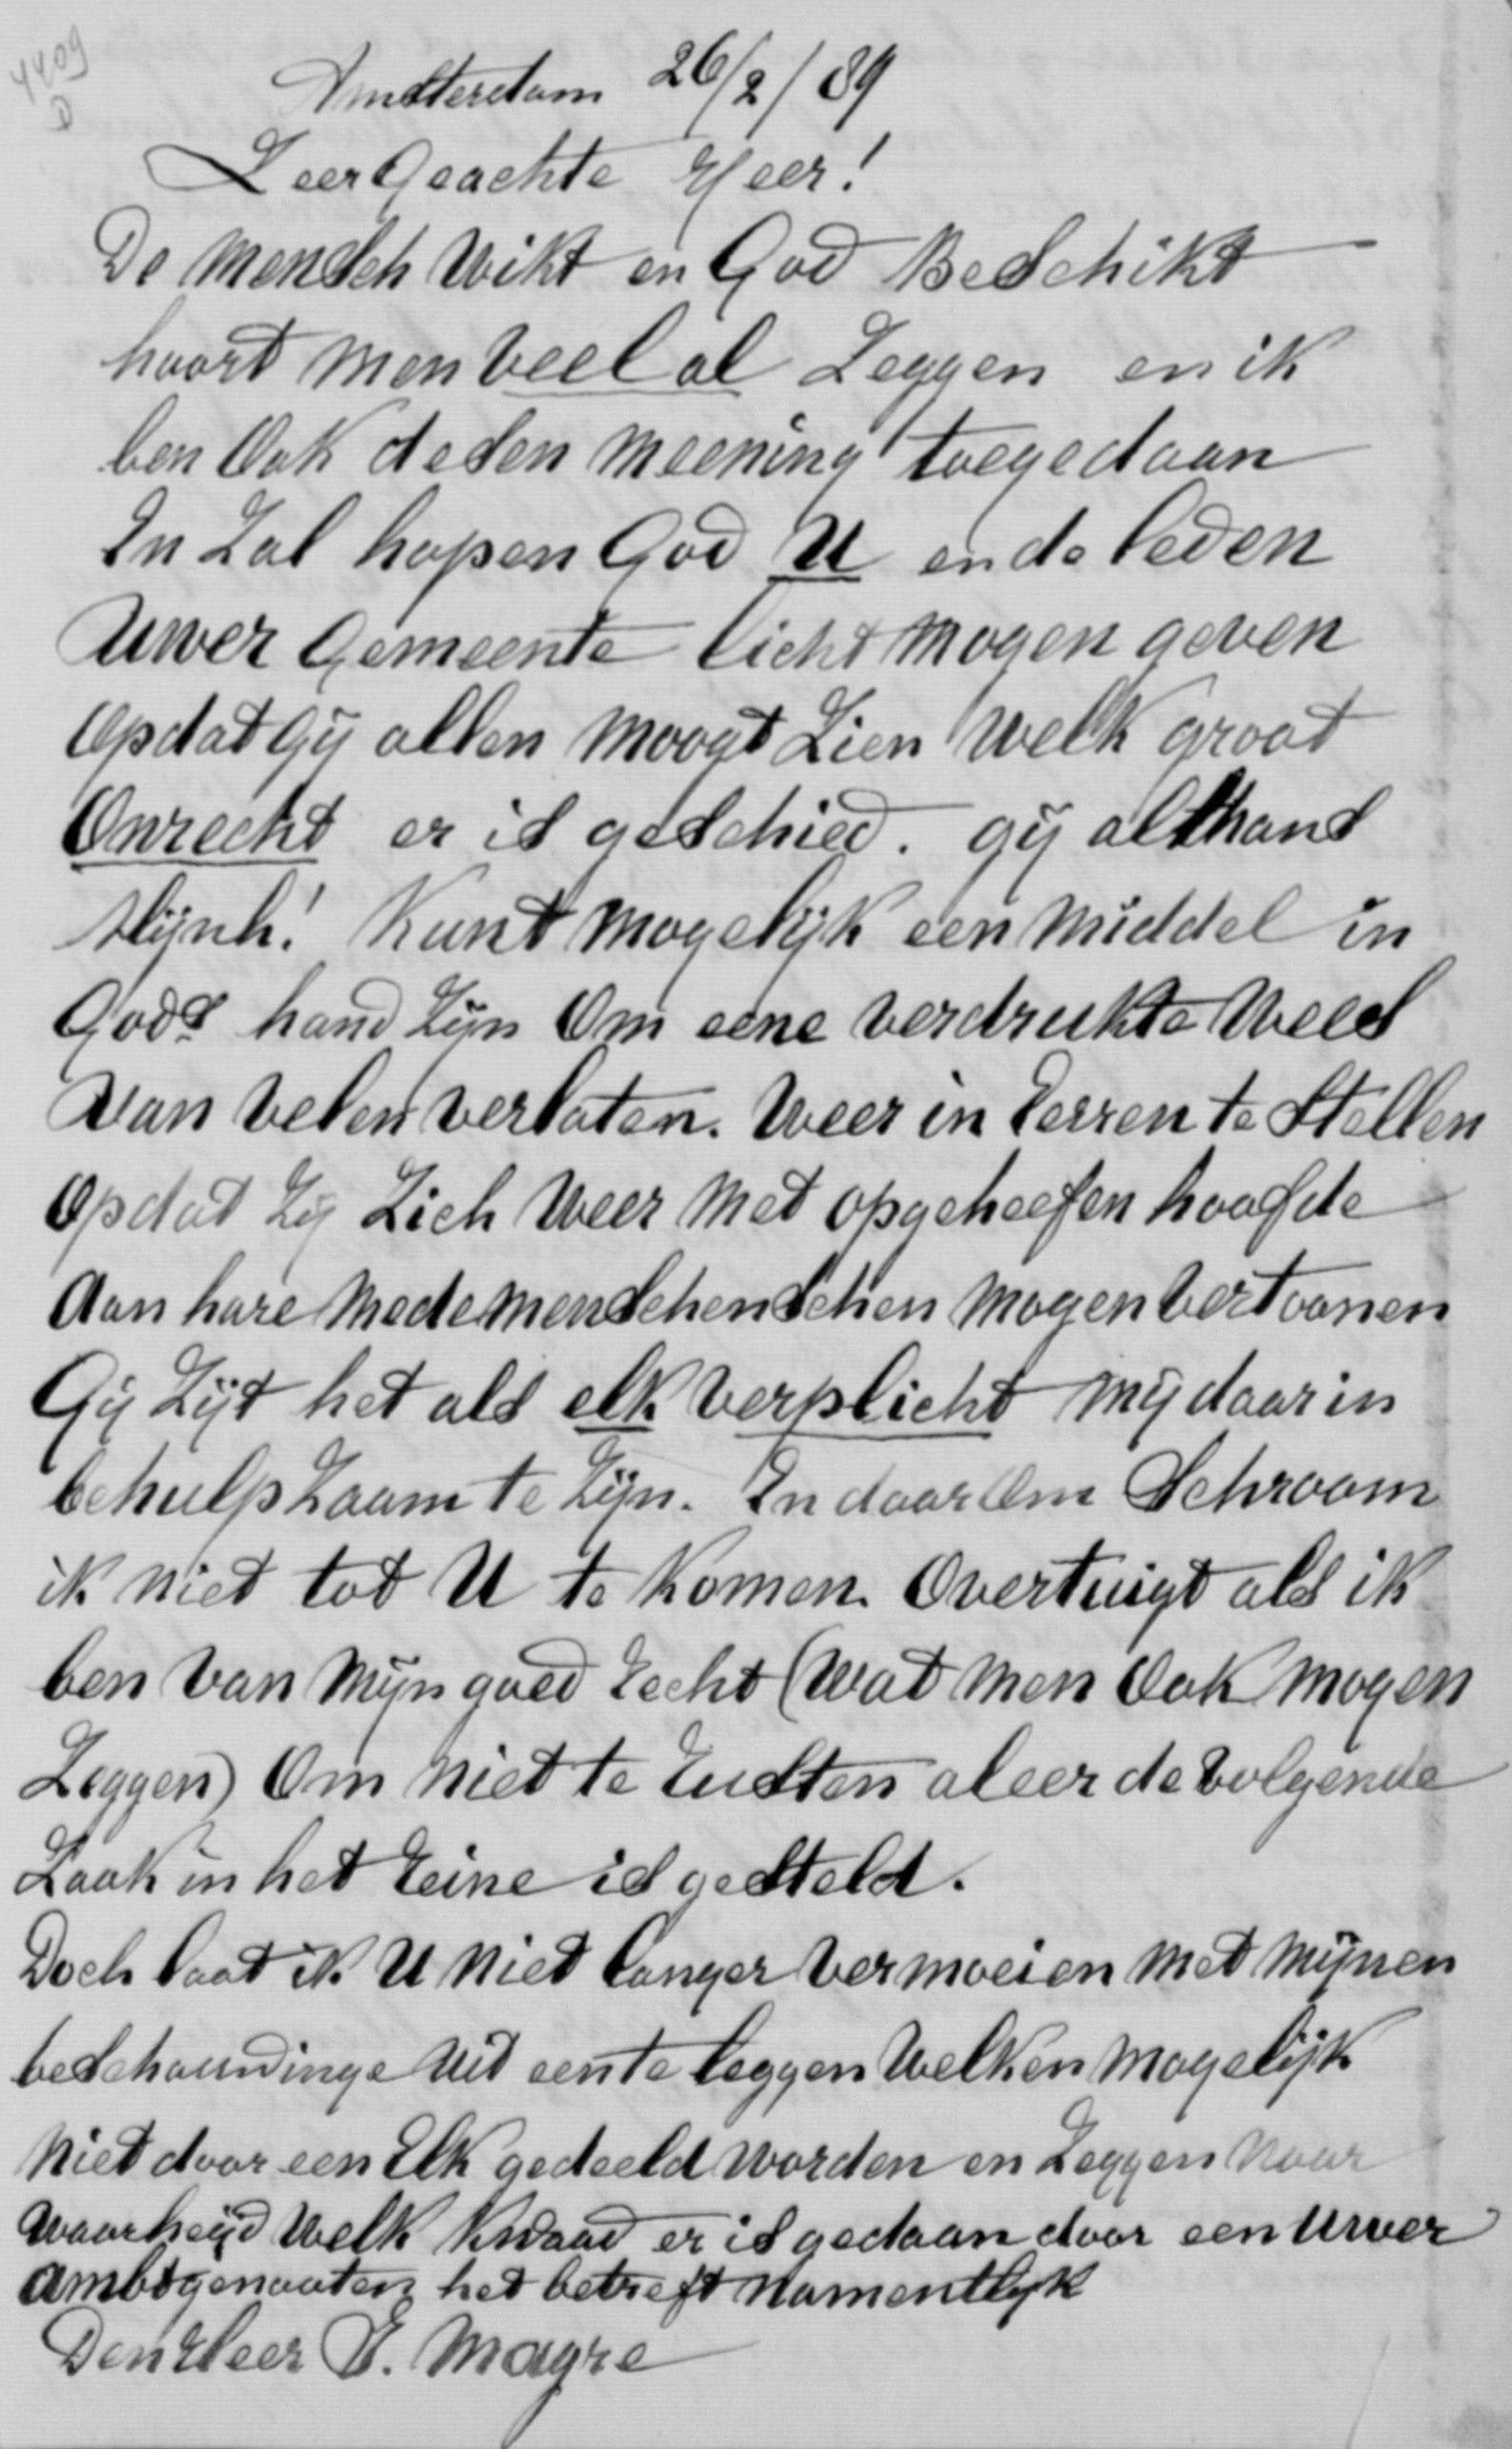 4409
D
Amsterdam 26/2/89
Zeer Geachte Heer!
De mensch Wikt en God Beschikt
hoort men veel al Zeggen en ik
ben Ook desen meening toegedaan
En Zal hopen God U en de leden
Uwer Gemeente licht mogen geven
Opdat Gij allen moogt Zien Welk groot
Onrecht er is geschied. gij althans
Kunt mogelijk een middel in
Gods hand Zijn Om eene verdrukte Wees
Van velen verlaten. Weer in Eerren te Stellen
Opdat Zij Zich Weer met opgeheefen hoofde
Aan hare medemenschenschen mogen vertoonen
Gij Zijt het als elk verplicht mij daar in
behulpzaam te Zijn. En daar Om Schroom
ik niet tot U te Komen. Overtuigt als ik
ben van mijn goed recht (Wat men Ook mogen
Zeggen) Om niet te rusten aleer de volgende
Zaak in het reine is gesteld.
Doch laat ik U niet langer vermoeien met mijnen
beschouwdinge uit een te leggen Welken mogelijk
niet door een Elk gedeeld worden en Zeggen naar
waarheijd Welk Kwaad er is gedaan door een Uwer
Ambtgenooten het betreft namentlijk
Den Heer E. Magre